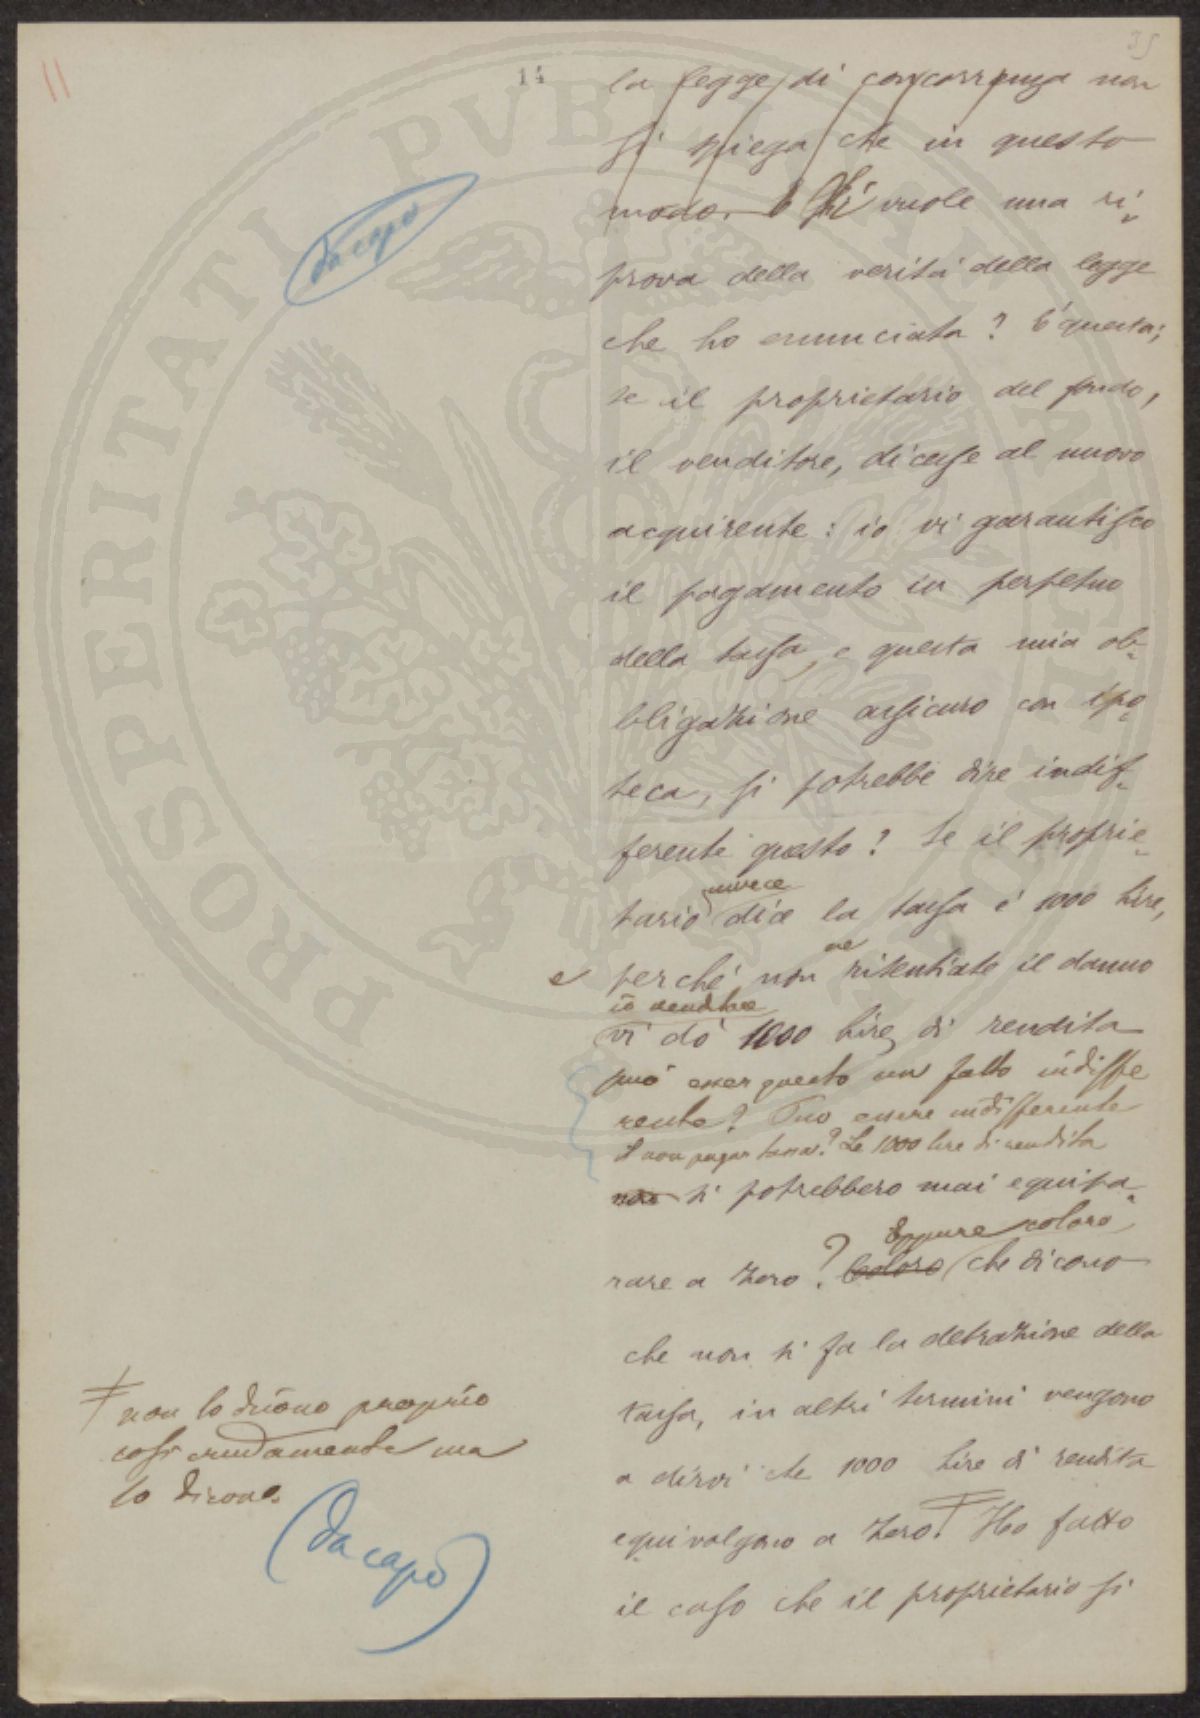 11
14
35
la legge di concorrenza non
si spiega che in questo
modo. Si vuole una ri-
da capo
prova della verità della legge
che ho enunciata? È questa;
se il proprietario del fondo,
il venditore, dicesse al nuovo
acquirente: io vi garantisco
il pagamento in perpetuo
della tassa, e questa mia ob-
bligazione assicuro con ipo-
teca, si potrebbe dire indif-
ferente questo? Se il proprie-
invece
tario dice la tassa è 1000 lire,
ne
e perché non risentiate il danno
io venditore
vi do 1000 lire di rendita
può esser questo un fatto indiffe
rente? Può essere indifferente
il non pagar tassa? Le 1000 lire di rendita
non si potrebbero mai equipa-
Eppure coloro
rare a zero? Coloro che dicono
che non si fa la detrazione della
tassa, in altri termini vengono
a dirvi che 1000 lire di rendita
equivalgono a zero! Ho fatto
il caso che il proprietario si
non lo dicono proprio
così crudamente ma
lo dicono.
(da capo)
PROSPERITATI PUBLICAE AUGENDAE